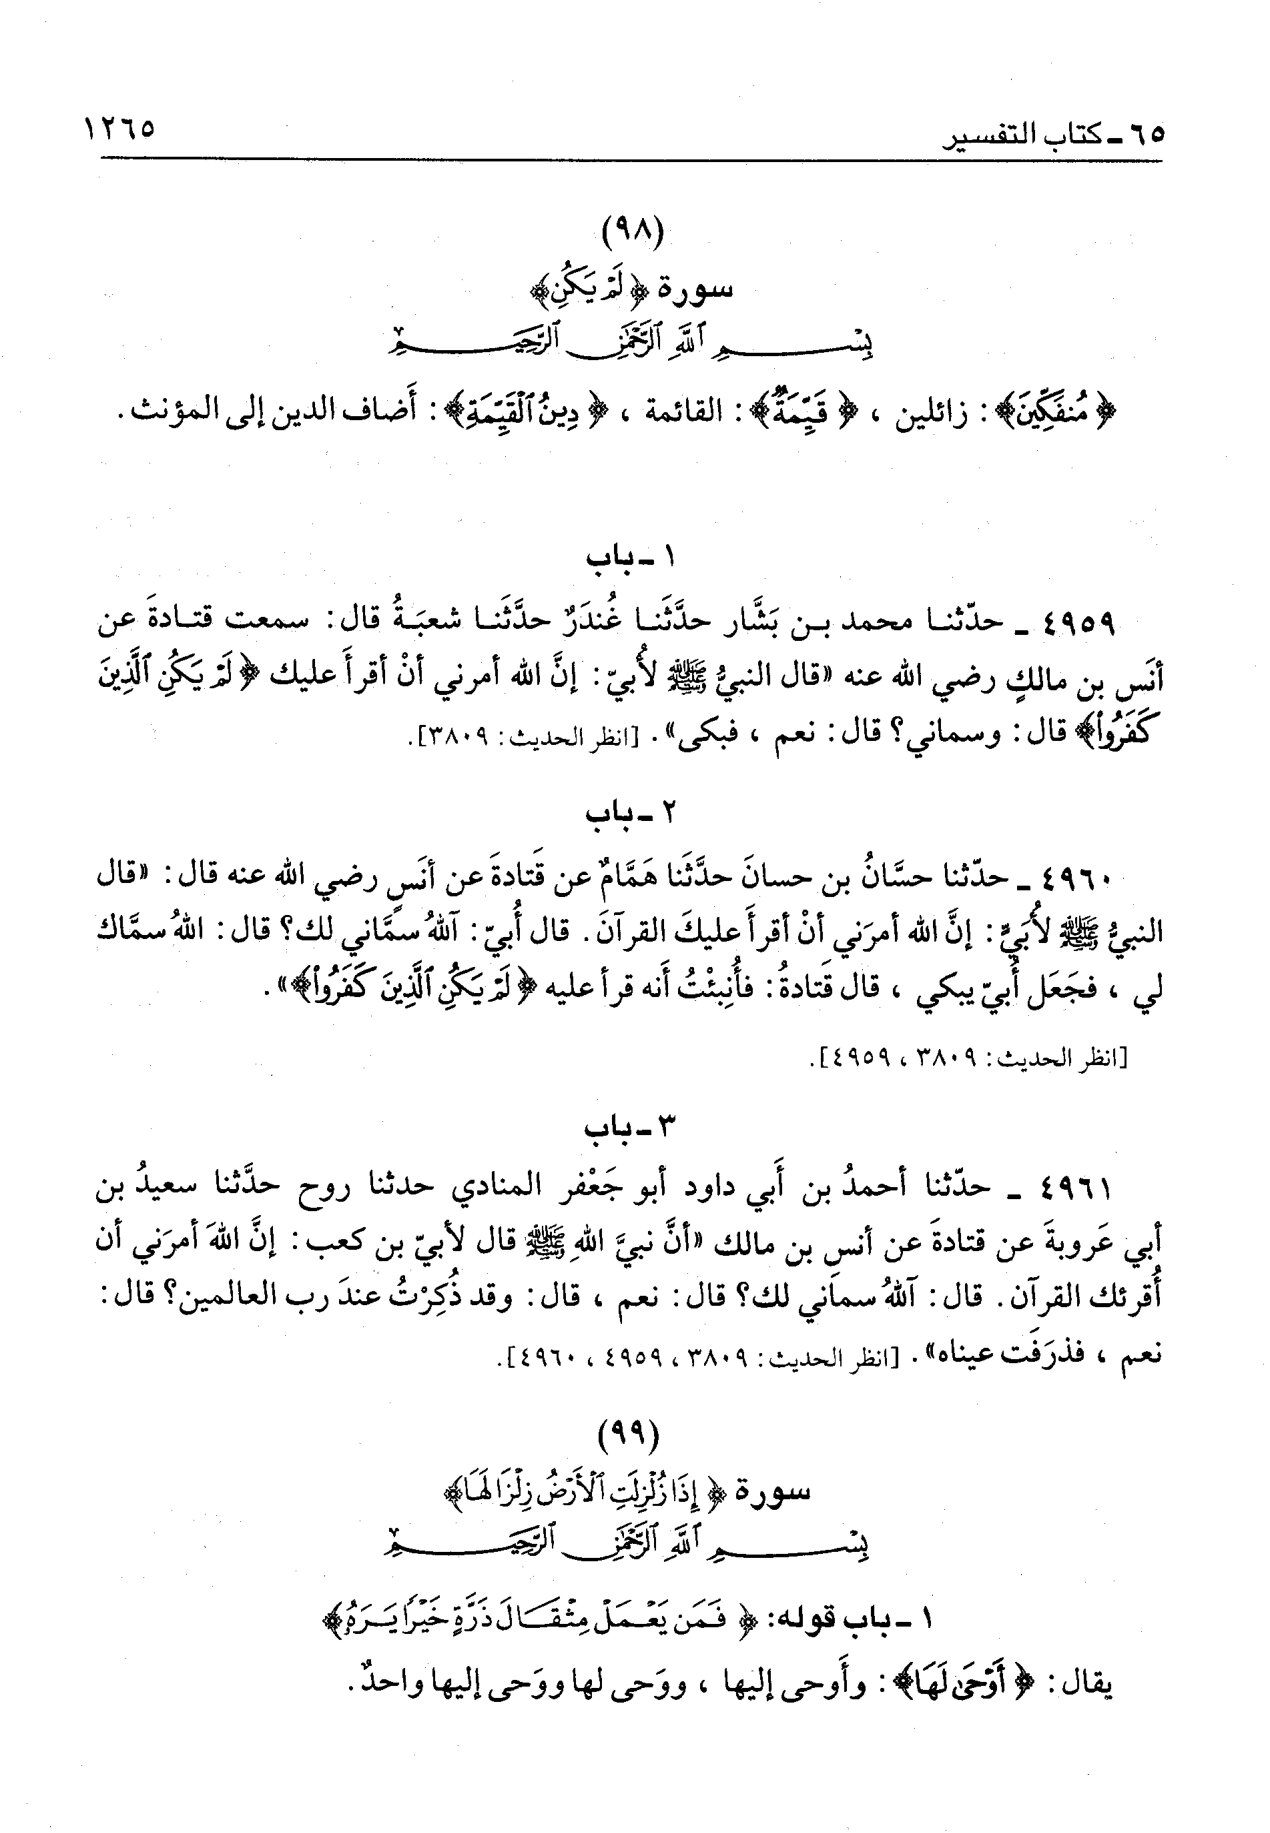 ٦٥ - كتاب التفسير
١٢٦٥
(٩٨)
سورة ﴿لَمْ يَكُنِ﴾
بِسْمِ ٱللَّهِ ٱلرَّحْمَٰنِ ٱلرَّحِيمِ
﴿مُنفَكِّينَ﴾: زائلين ، ﴿قَيِّمَةٌ﴾: القائمة ، ﴿دِينُ ٱلْقَيِّمَةِ﴾: أَضاف الدين إلى المؤنث.
١ - باب
٤٩٥٩ - حدّثنا محمد بن بَشَّار حدَّثَنا غُندَرٌ حدَّثَنا شعبَةُ قال: سمعت قتادةَ عن
أنَس بن مالكٍ رضي الله عنه «قال النبيُّ ﷺ لأُبيّ: إنَّ الله أمرني أنْ أقرأَ عليك ﴿لَمْ يَكُنِ ٱلَّذِينَ
كَفَرُوا۟﴾ قال: وسماني؟ قال: نعم ، فبكى». [انظر الحديث: ٣٨٠٩].
٢ - باب
٤٩٦٠ - حدّثنا حسَّانُ بن حسانَ حدَّثَنا هَمَّامٌ عن قَتادةَ عن أنَسٍ رضي الله عنه قال: «قال
النبيُّ ﷺ لأُبَيٍّ: إنَّ الله أمرَني أنْ أقرأَ عليكَ القرآنَ. قال أُبيّ: آللهُ سمَّاني لك؟ قال: اللهُ سمَّاك
لي ، فجَعَل أُبيّ يبكي ، قال قَتادةُ: فأُنبِئْتُ أَنه قرأ عليه ﴿لَمْ يَكُنِ ٱلَّذِينَ كَفَرُوا۟﴾».
[انظر الحديث: ٣٨٠٩ ، ٤٩٥٩].
٣ - باب
٤٩٦١ - حدّثنا أحمدُ بن أَبي داود أبو جَعْفر المنادي حدثنا روح حدَّثنا سعيدُ بن
أبي عَروبةَ عن قتادةَ عن أنس بن مالك «أنَّ نبيَّ اللهِ ﷺ قال لأبيّ بن كعب: إنَّ اللهَ أمرَني أن
أُقرئك القرآن. قال: آللهُ سماني لك؟ قال: نعم ، قال: وقد ذُكِرْتُ عندَ رب العالمين؟ قال:
نعم ، فذرَفَت عيناه». [انظر الحديث: ٣٨٠٩ ، ٤٩٥٩ ، ٤٩٦٠].
(٩٩)
سورة ﴿إِذَا زُلْزِلَتِ ٱلْأَرْضُ زِلْزَالَهَا﴾
بِسْمِ ٱللَّهِ ٱلرَّحْمَٰنِ ٱلرَّحِيمِ
١ - باب قوله: ﴿فَمَن يَعْمَلْ مِثْقَالَ ذَرَّةٍ خَيْرًا يَرَهُۥ﴾
يقال: ﴿أَوْحَىٰ لَهَا﴾: وأَوحى إليها ، ووَحى لها ووَحى إليها واحدٌ.